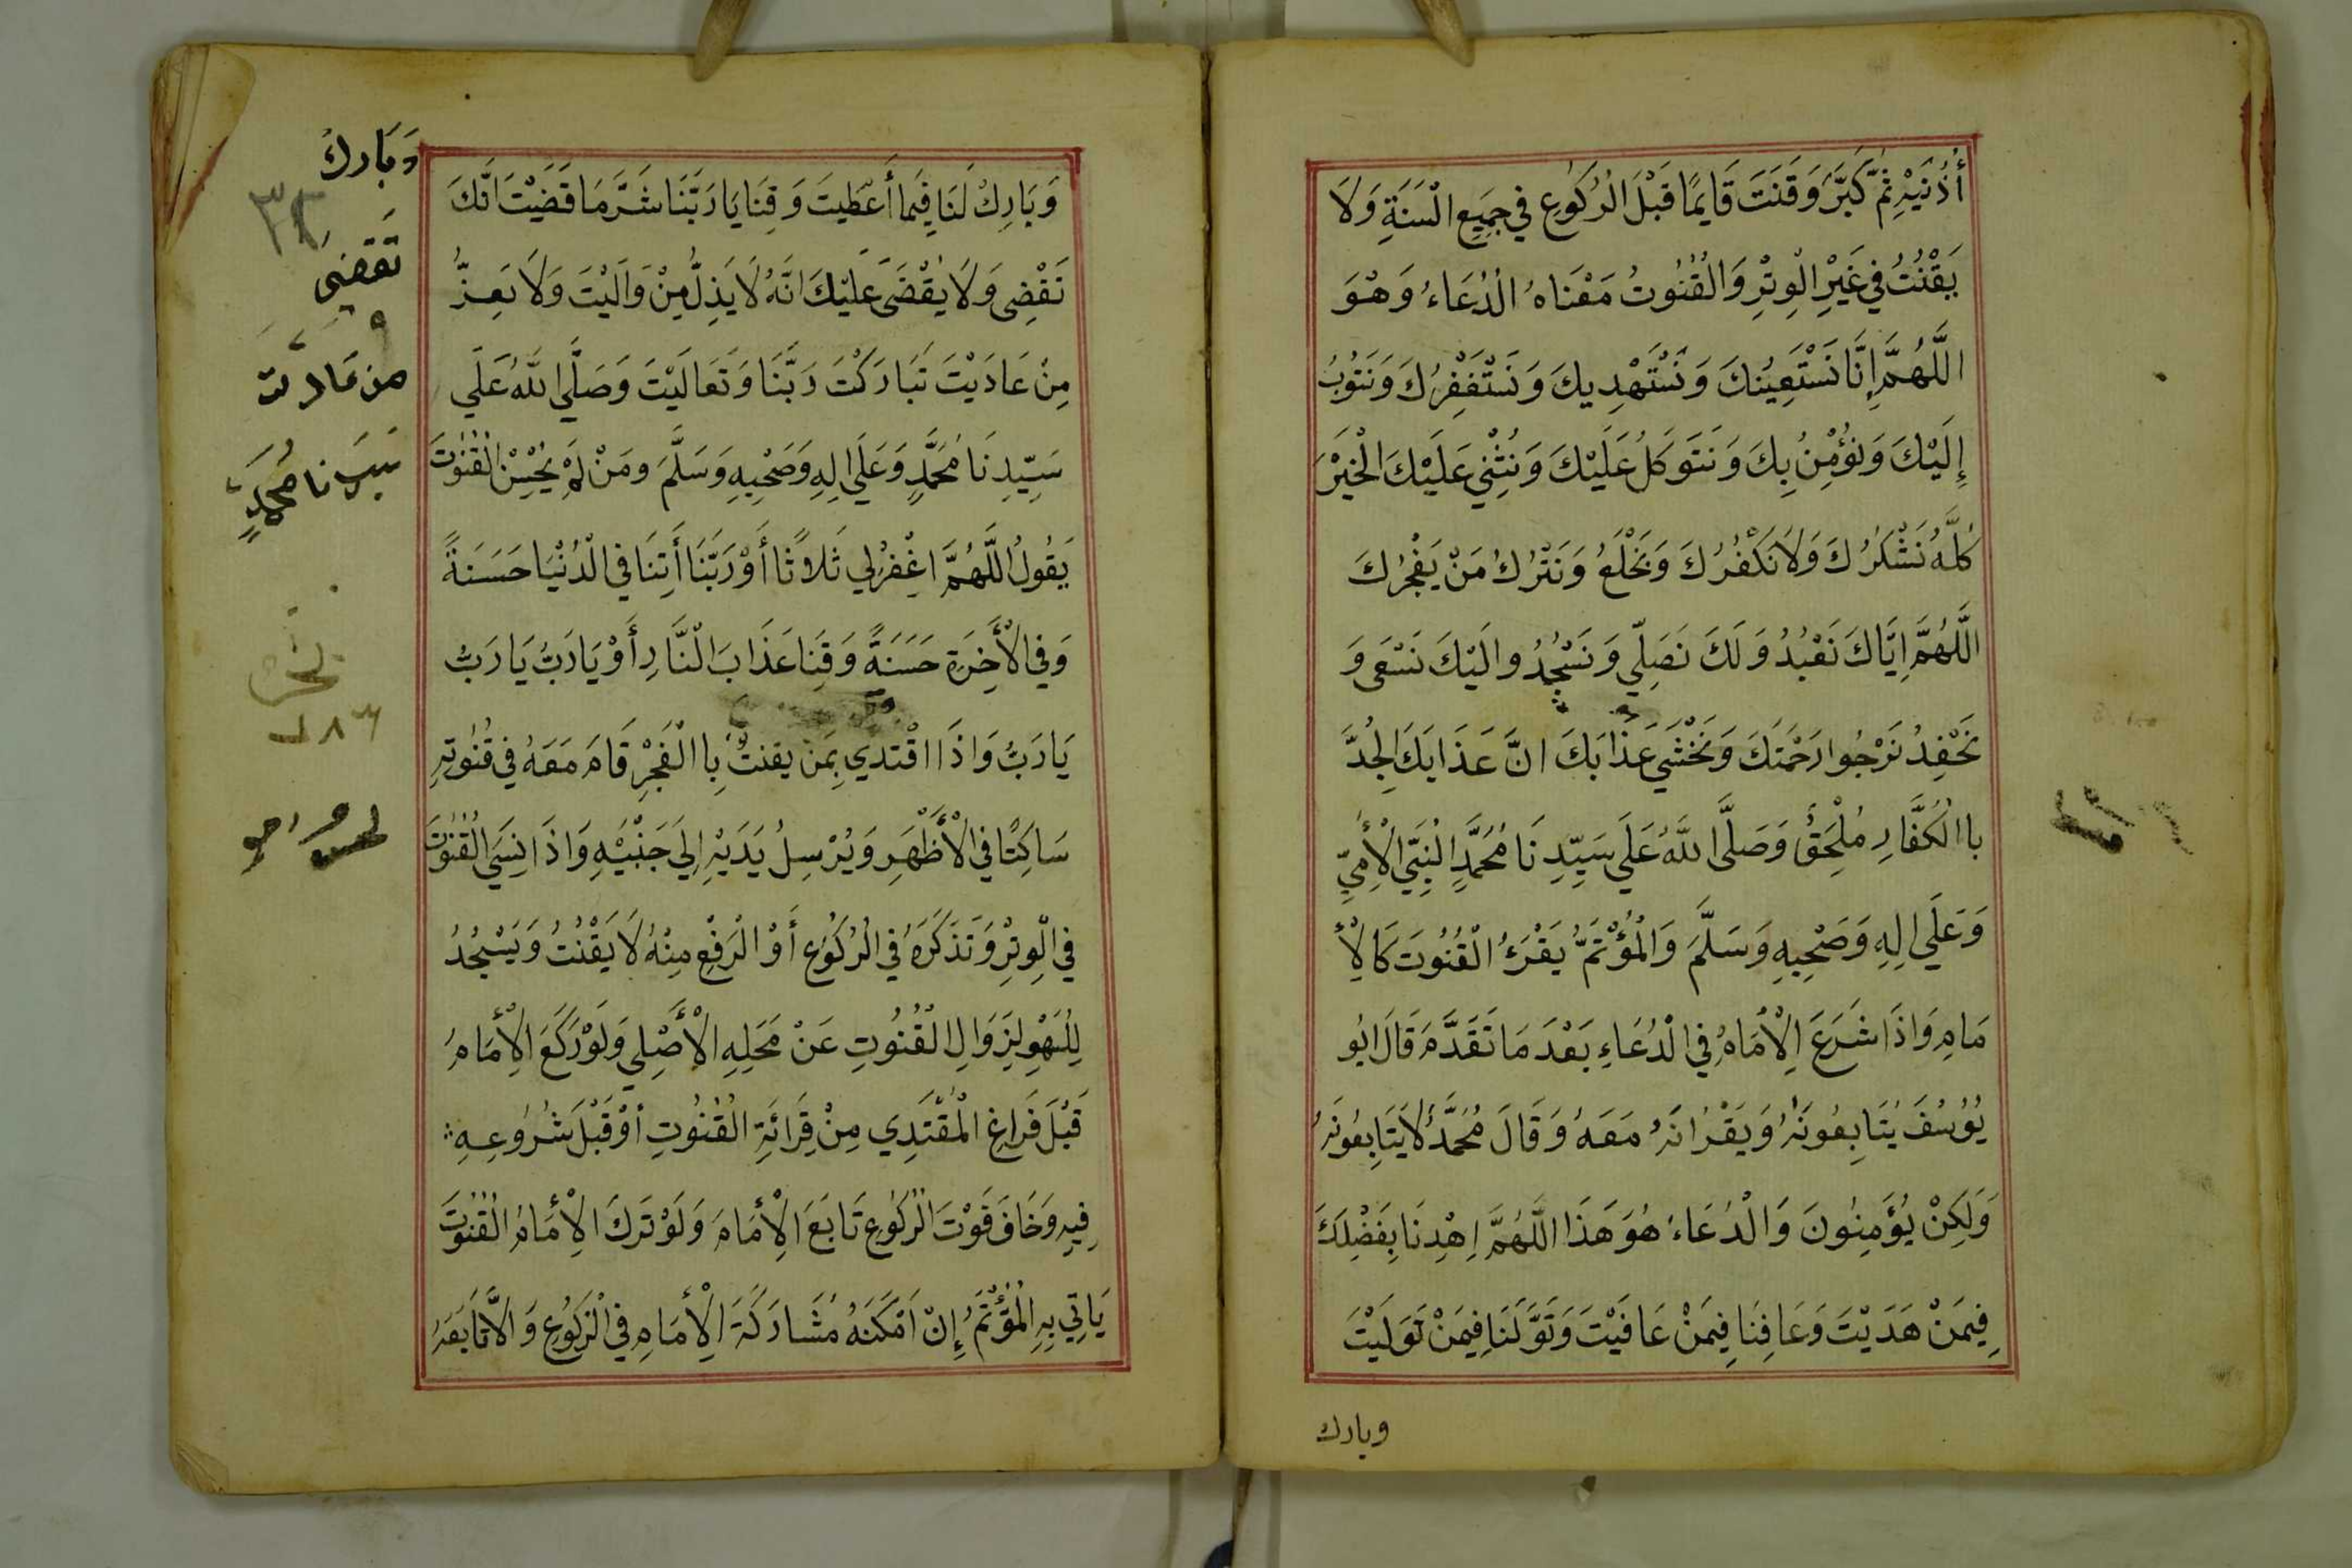 أُذُنَيْهِ ثُمَّ كَبَّرَ وَقَنَتَ قَايِمًا قَبْلَ الْرُكُوعِ فِي جَمِيعِ الْسَنَةِ وَلَا
يَقْنُتُ فِي غَيْرِ الْوِتْرِ وَالْقُنُوتُ مَعْنَاهُ الْدُعَاءُ وَهْوَ
اللَّهُمَّ إِنَّا نَسْتَعِيْنُكَ وَنَسْتَهْدِيكَ وَنَسْتَغْفِرُكَ وَنَتُوبُ
إِلَيْكَ وَنُؤْمِنُ بِكَ وَنَتَوَكَلُ عَلَيْكَ وَنُثْنِي عَلَيْكَ الْخَيْرَ
كُلَّهُ نَشْكُرُكَ وَلَا نَكْفُرُكَ وَنَخْلَعُ وَنَتْرُكُ مَنْ يَفْجُرُكَ
اللَّهُمَّ اِيَّاكَ نَعْبُدُ وَلَكَ نَصَلِّي وَنَسْجُدُ والَيْكَ نَسْعَى وَ
نَحْفِدُ نَرْجُوا رَحْمَتَكَ وَنَخْشَي عَذَابَكَ انَّ عَذَابَكَ الْجِدَّ
باالْكُفَّارِ مُلْحِقٌ وَصَلَّى اللَّهُ عَلَي سَيِّدِنَا مُحَمَّدٍ الْنَبِيِّ الْأُمِيِّ
وَعَلَي الِهِ وَصَحْبِهِ وَسَلَّمَ وَالْمُؤْتَمُّ يَقْرَءُ الْقُنُوتَ كَالْأِ
مَامِ وَاذَا شَرَعَ اِلْأمَامُ فِي الْدُعَاءِ بَعْدَ مَا تَقَدَّمَ قَالَ ابُو
يُوْسُفَ يُتَابِعُونَهُ وَيَقْرَانَهُ مَعَهُ وَقَالَ مُحَمَّدٌ لَا يُتَابِعُونَهُ
وَلَكِنْ يُؤَمِنُونَ وَالْدُعَاءُ هُوَ هَذَا اللَّهُمَّ اِهْدِنَا بِفَضْلِكَ
فِيمَنْ هَدَيْتَ وَعَافِنَا فِيمَنْ عَافَيْتَ وَتَوَّلَنَا فِيمَنْ تَوَلَيْتَ
وبارك
وَبَارِكْ لَنَا فِيمَا أَعْطَيتَ وَقِنَا يَا رَبَّنَا شَرَّ مَا قَضَيْتَ انَّكَ
تَقْضِى وَلَا يُقْضَى عَلَيْكَ انَّهُ لَا يَذِلُّ مِنْ وَالَيْتَ وَلَا يَعِزُّ
مِنْ عَادَيْتَ تَبَارَكْتَ رَبَّنَا وَتَعَالَيْتَ وَصَلَّي اللَّهُ عَلَي
سَيِّدِنَا مُحَمَّدٍ وَعَلَي الِهِ وَصَحْبِهِ وَسَلَّمَ ومَنْ لَمْ يُحْسِنْ الْقُنُوتَ
يَقُولُ اللَّهُمَّ اغْفِرْلِي ثَلَاثًا أَوْ رَبَّنَا أَتِنَا فِي الْدُنْيَا حَسَنَةً
وَفِي الْأَخِرَةِ حَسَنَةً وَقِنَا عَذَابَ الْنَّارِ أَوْ يَا رَبُّ يَا رَبُّ
يَا رَبُّ وَاذَا اقْتدي بِمَنْ يقنتُ بِاالْفَجْرِ قَامَ مَعَهُ فِي قُنُوتِهِ
سَاكِتًا فِي الْأَظْهَرِ وَيُرْسِلُ يَدَيْهِ اِلَي جَنْبَيْهِ وَاذَا نِسَيَ الْقُنُوتَ
فِي الْوِتْرِ وَتَذَكَرَهُ فِي الْرُكُوعِ أَوْ الْرَفْعِ مِنْهُ لَا يَقْنُتُ وَيَسْجُدُ
لِلْسَهْوِ لِزَوَالِ الْقُنُوتِ عَنْ مَحَلِهِ الْأَصْلِي وَلَوْ رَكَعَ الْأِمَامُ
قَبْلَ فَرَاغِ الْمُقْتَدِي مِنْ قِرَائَةِ الْقُنُوتِ أوْ قَبْلَ شُرُوعِهِ
فِيهِ وَخَافَ فَوْتَ الْرُكُوعِ تَابَعَ الْأِمَامَ وَلَوْ تَرَكَ الْأِمَامُ الْقُنُوتَ
يَاتِي بِهِ الْمُؤْتَمُّ إِنْ اَمْكَنَهُ مُشَارَكَةَ الْأِمَامِ فِي الْرُكُوعِ وَالَّا تَابَعَهُ
وَبَارك
٣٢
تَقضِىَ
من عَادَيت
سَيدِنا مُحَمَدٍ